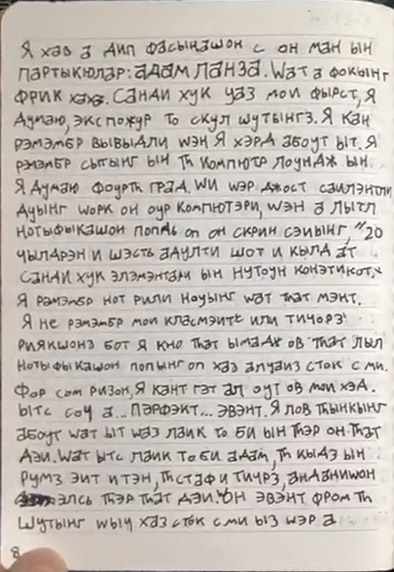 Я хав а дип фасынашон с он ман ын
партыкюлар: адам ланза. Wат а фокынг
фрик хаха. Санди хук уаз мои фырст, я
думаю, экспожур то скул шутынгз. Я кан
рэмэмбр вывыдли wэн я хэрд абоут ыт. Я
рэмэмбр сытынг ын th компютр лоундж ын.
Я думаю фоурth град. Wи wэр джост саилэнтли
дуынг wорк он оур компютэри, wэн а лытл
нотыфыкашон оп он скрин сэиынг, "20
чылдрэн и шэсть адулти шот и кылд ат
Санди хук элэмэнтари ын нутоун конэтикот."
Я рэмэмбр нот рили ноуынг wат thaт мэнт.
Я не рэмэмбр мои класмэитс или тичорз
риякшонз бот я кно thaт ымадж ов thaт лыл
нотыфыкашон попынг оп хаз алуаиз сток с ми.
Фор сом ризон, я кант гэт ал оут ов мои хэд.
Ытс соу а... пэрфэкт... эвэнт. Я лов thынкынг
абоут wат ыт wаз лаик то би ын thэр он thaт
дэи. Wат ытс лаик то би адам, th кыдз ын
румз эит и тэн, th стаф и тичрз, анданиwон
элсь thэр thaт дэи. Он эвэнт фром th
шутынг wыч хаз сток с ми ыз wэр а
8